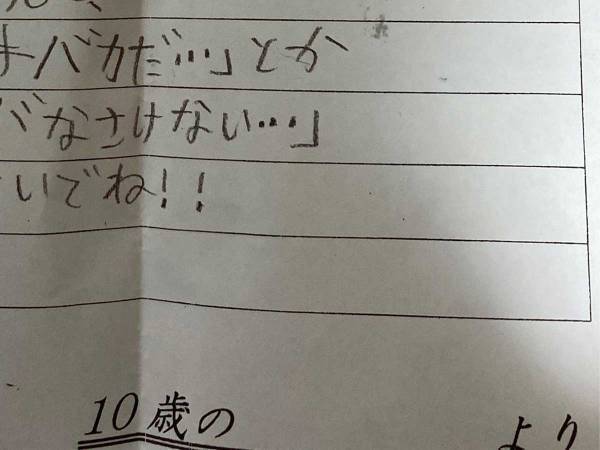 バカだ…」とか
なさけない…」
いでね!!
10歳の より